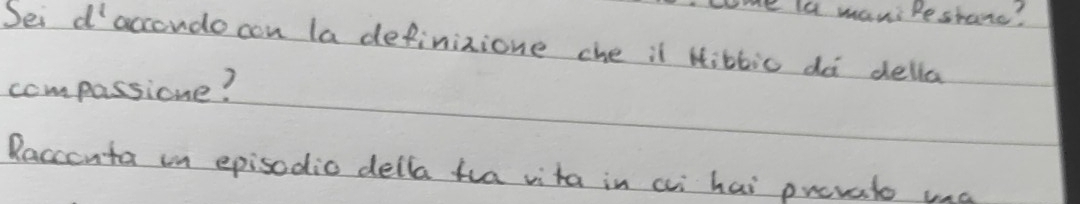 come la manifestano?
Sei d'accondo con la definizione che il Nibbio dà della
compassione?
Racconta un episodio della tua vita in cui hai provato una